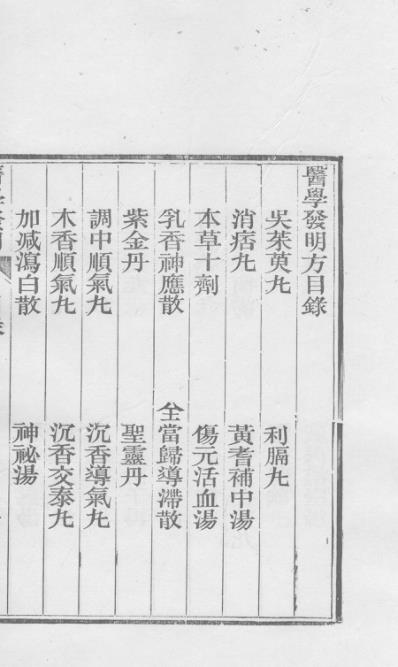 醫學發明方目錄
吳茱萸丸 利膈丸
消痞丸 黃耆補中湯
本草十劑 傷元活血湯
乳香神應散 全當歸導滯散
紫金丹 聖靈丹
調中順氣丸 沉香導氣丸
木香順氣丸 沉香交泰丸
加減瀉白散 神祕湯